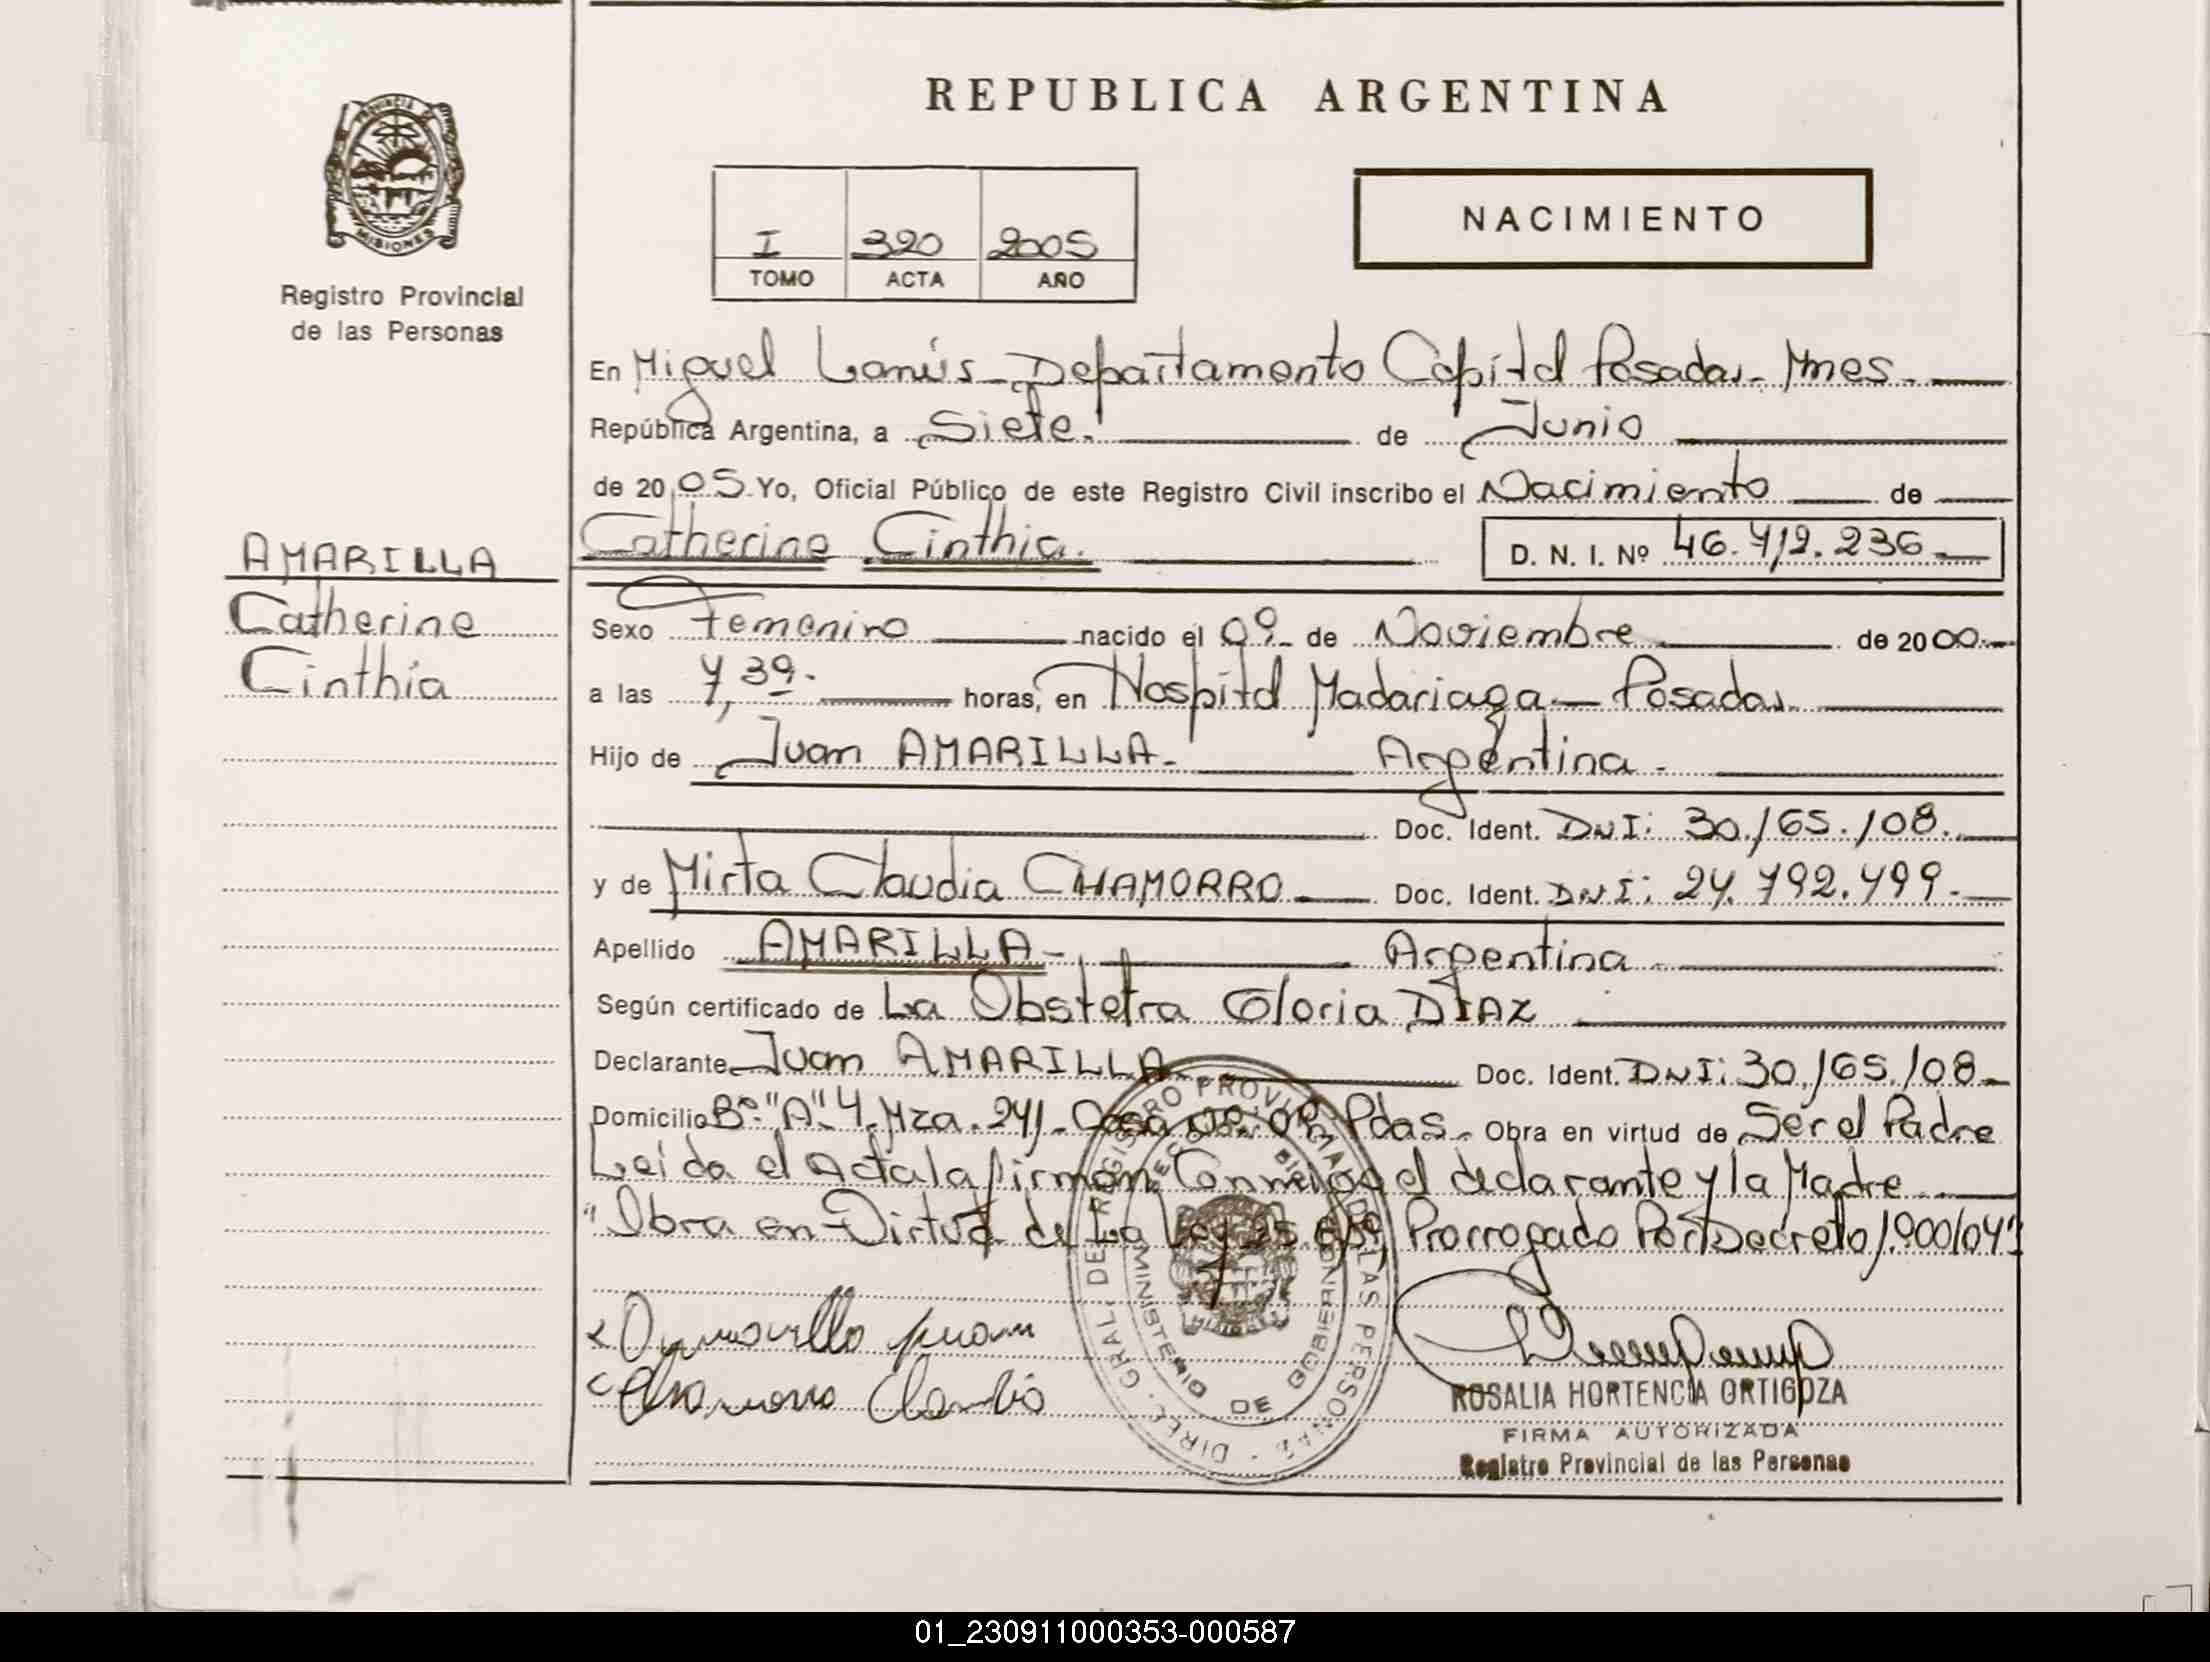 REPUBLICA ARGENTINA
PROVINCIA DE MISIONES
Registro Provincial
de las Personas
I 320 2005
TOMO ACTA AÑO
NACIMIENTO
En Miguel Lanús - Departamento Capital Posadas - Mnes.
República Argentina, a Siete. de Junio
de 2005 Yo, Oficial Público de este Registro Civil inscribo el Nacimiento de
AMARILLA
Catherine
Cinthia
Catherine Cinthia. D. N. I. Nº 46.712.236
Sexo Femenino nacido el 09 de Noviembre de 2000.
a las 7,39. horas, en Hospital Madariaga - Posadas.
Hijo de Juan AMARILLA. Argentina.
Doc. Ident. DNI: 30.165.108.
y de Mirta Claudia CHAMORRO Doc. Ident. DNI: 24.792.499.
Apellido AMARILLA - Argentina.
Según certificado de La Obstetra Gloria DIAZ
Declarante Juan AMARILLA Doc. Ident. DNI: 30.165.108
Domicilio Bº "A" 4. Mza. 241 - Casa Pdas. Obra en virtud de Ser el Padre
Leida el Acta la firman Conmigo el declarante y la Madre
"Obra en Virtud de La Ley 25. Prorrogado Por Decreto 1.900/04"
Amarilla Juan
Chamorro Claudia
DIREC. GRAL. DE REGISTRO PROVINCIAL DE LAS PERSONAS
MINISTERIO DE GOBIERNO
ROSALIA HORTENCIA ORTIGOZA
FIRMA AUTORIZADA
Registro Provincial de las Personas
01_230911000353-000587